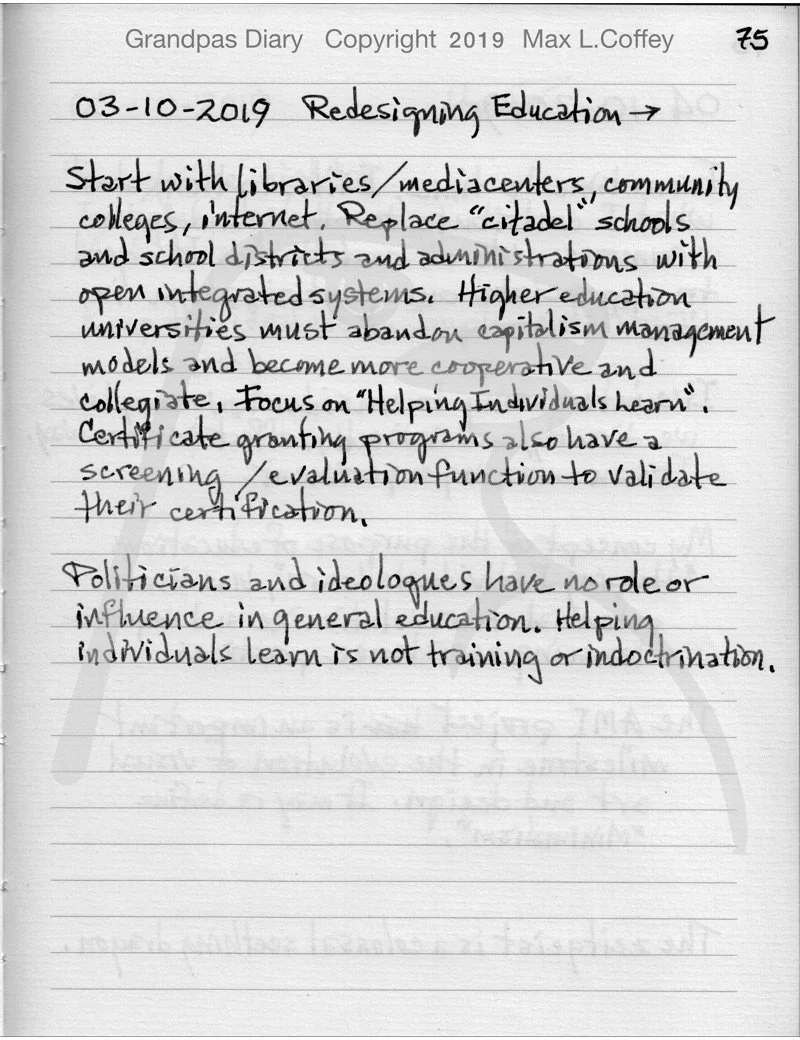 Grandpas Diary Copyright 2019 Max L.Coffey 75
03-10-2019 Redesigning Education →
Start with libraries/mediacenters, community
colleges, internet. Replace "citadel" schools
and school districts and administrations with
open integrated systems. Higher education
universities must abandon capitalism management
models and become more cooperative and
collegiate. Focus on "Helping Individuals Learn".
Certificate granting programs also have a
screening /evaluation function to validate
their certification.
Politicians and ideologues have no role or
influence in general education. Helping
individuals learn is not training or indoctrination.